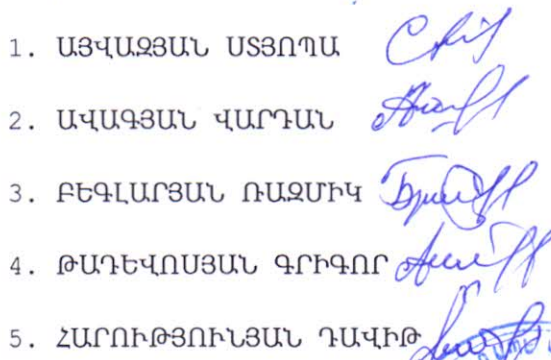 1. ԱՅՎԱԶՅԱՆ ՍՏՅՈՊԱ
2. ԱՎԱԳՅԱՆ ՎԱՐԴԱՆ
3. ԲԵԳԼԱՐՅԱՆ ՌԱԶՄԻԿ
4. ԹԱԴԵՎՈՍՅԱՆ ԳՐԻԳՈՐ
5. ՀԱՐՈՒԹՅՈՒՆՅԱՆ ԴԱՎԻԹ